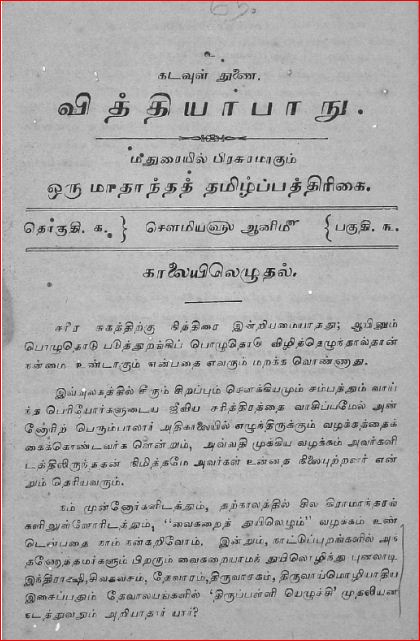 உ
கடவுள் துணை.
வித்தியாபாநு.
மதுரையில் பிரசுரமாகும்
ஒரு மாதாந்தத் தமிழ்ப்பத்திரிகை.
தொகுதி. க. } சௌமியஹ ஆனிமீ { பகுதி. ௩.
காலையிலெழுதல்.
சரீர சுகத்திற்கு நித்திரை இன்றியமையாதது; ஆயினும்
பொழுதொடு படுத்துறங்கிப் பொழுதொடு விழித்தெழுந்தால்தான்
நன்மை உண்டாகும் என்பதை எவரும் மறக்க வொண்ணாது.
இவ்வுலகத்தில் சீரும் சிறப்பும் சௌக்கியமும் சம்பத்தும் வாய்
ந்த பெரியோர்களுடைய ஜீவிய சரித்திரத்தை வாசிப்பமேல் அன்
னோரிற் பெரும்பாலார் அதிகாலையில் எழுந்திருக்கும் வழக்கத்தைக்
கைக்கொண்டவர்க ளென்றும், அவ்வதி முக்கிய வழக்கம் அவர்களி
டத்திலிருந்ததன் நிமித்தமே அவர்கள் உன்னத நிலைபுற்றனர் என்
றும் தெரியவரும்.
நம் முன்னோர்களிடத்தும், தற்காலத்தில் சில கிராமாந்தரங்
களிலுள்ளோரிடத்தும், "வைகறைத் துயிலெழும்" வழக்கம் உண்
டென்பதை நாம் நன்கறிவோம். இன்றும், நாட்டுப்புறங்களில் அந்
தணோத்தமர்களும் பிறரும் வைகறையாமத் துயிலொழிந்து புனலாடி
இந்திராக்ஷி, சிவகவசம், தேவாரம், திருவாசகம், திருவாய்மொழியாதிய
இசைப்பதும் தேவாலயங்களில் 'திருப்பள்ளி யெழுச்சி' முதலியன
நடத்துவதும் அறியாதார் யார்?